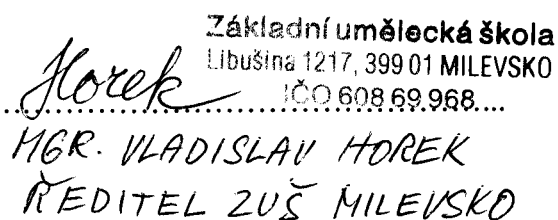 Základní umělecká škola
Libušina 1217, 399 01 MILEVSKO
IČO 608 69 968
Horek
MGR. VLADISLAV HOREK
ŘEDITEL ZUŠ MILEVSKO